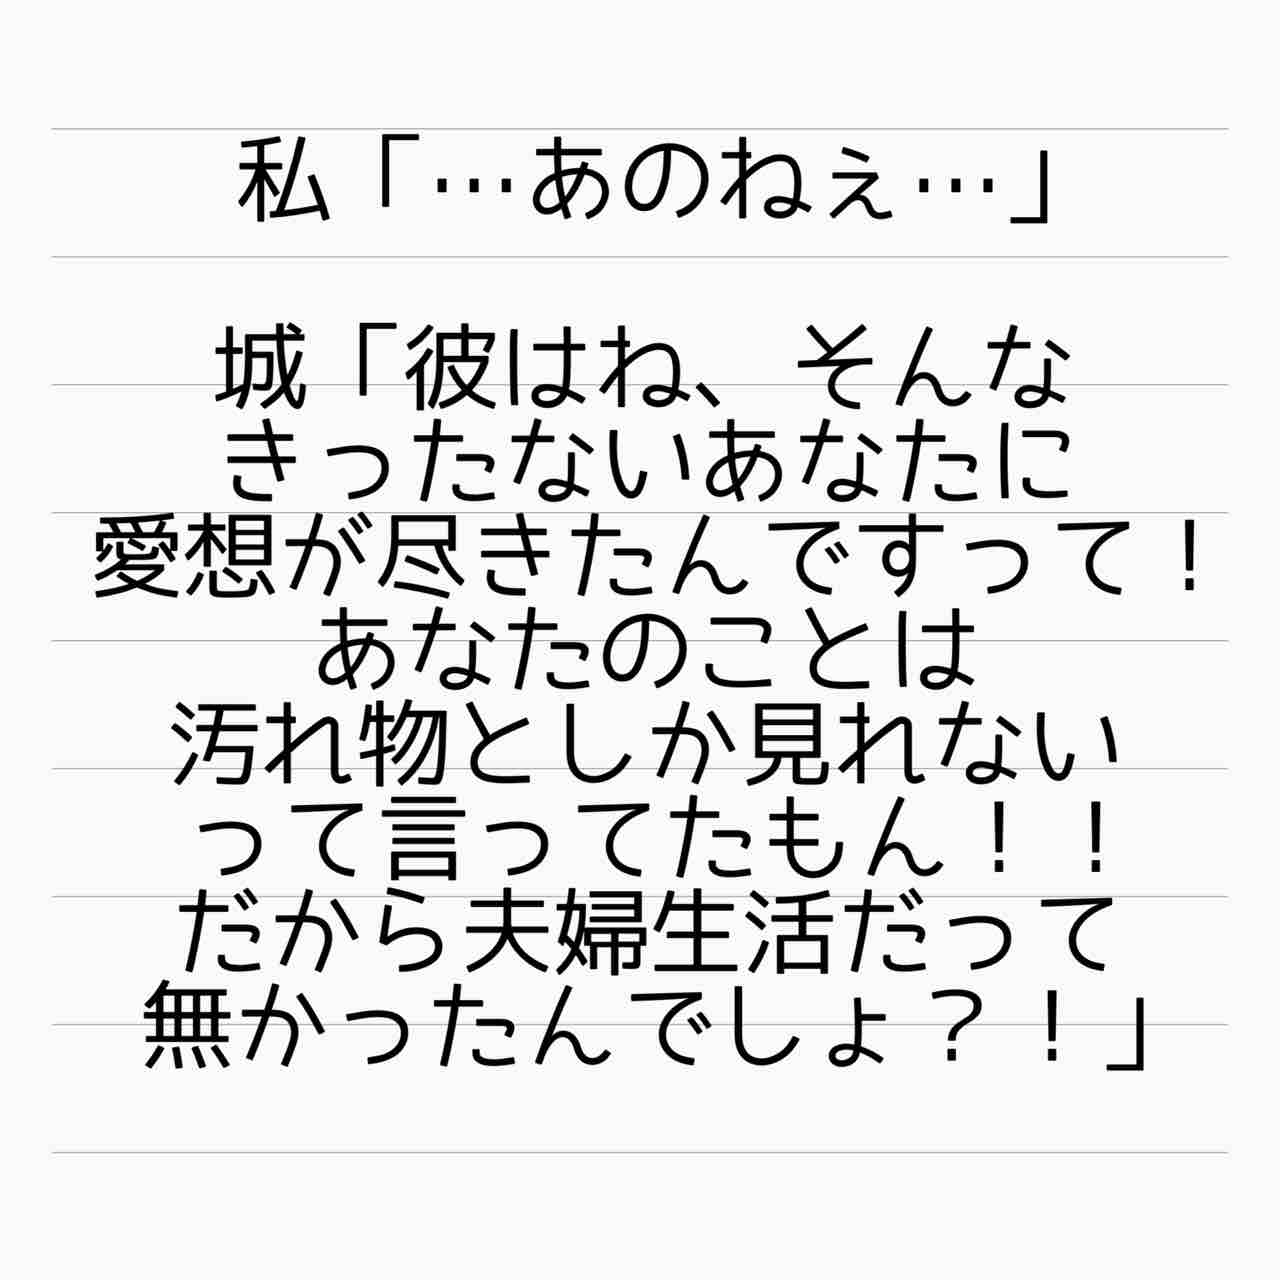 私「…あのねぇ…」
城「彼はね、そんな
きったないあなたに
愛想が尽きたんですって！
あなたのことは
汚れ物としか見れない
って言ってたもん！！
だから夫婦生活だって
無かったんでしょ？！」